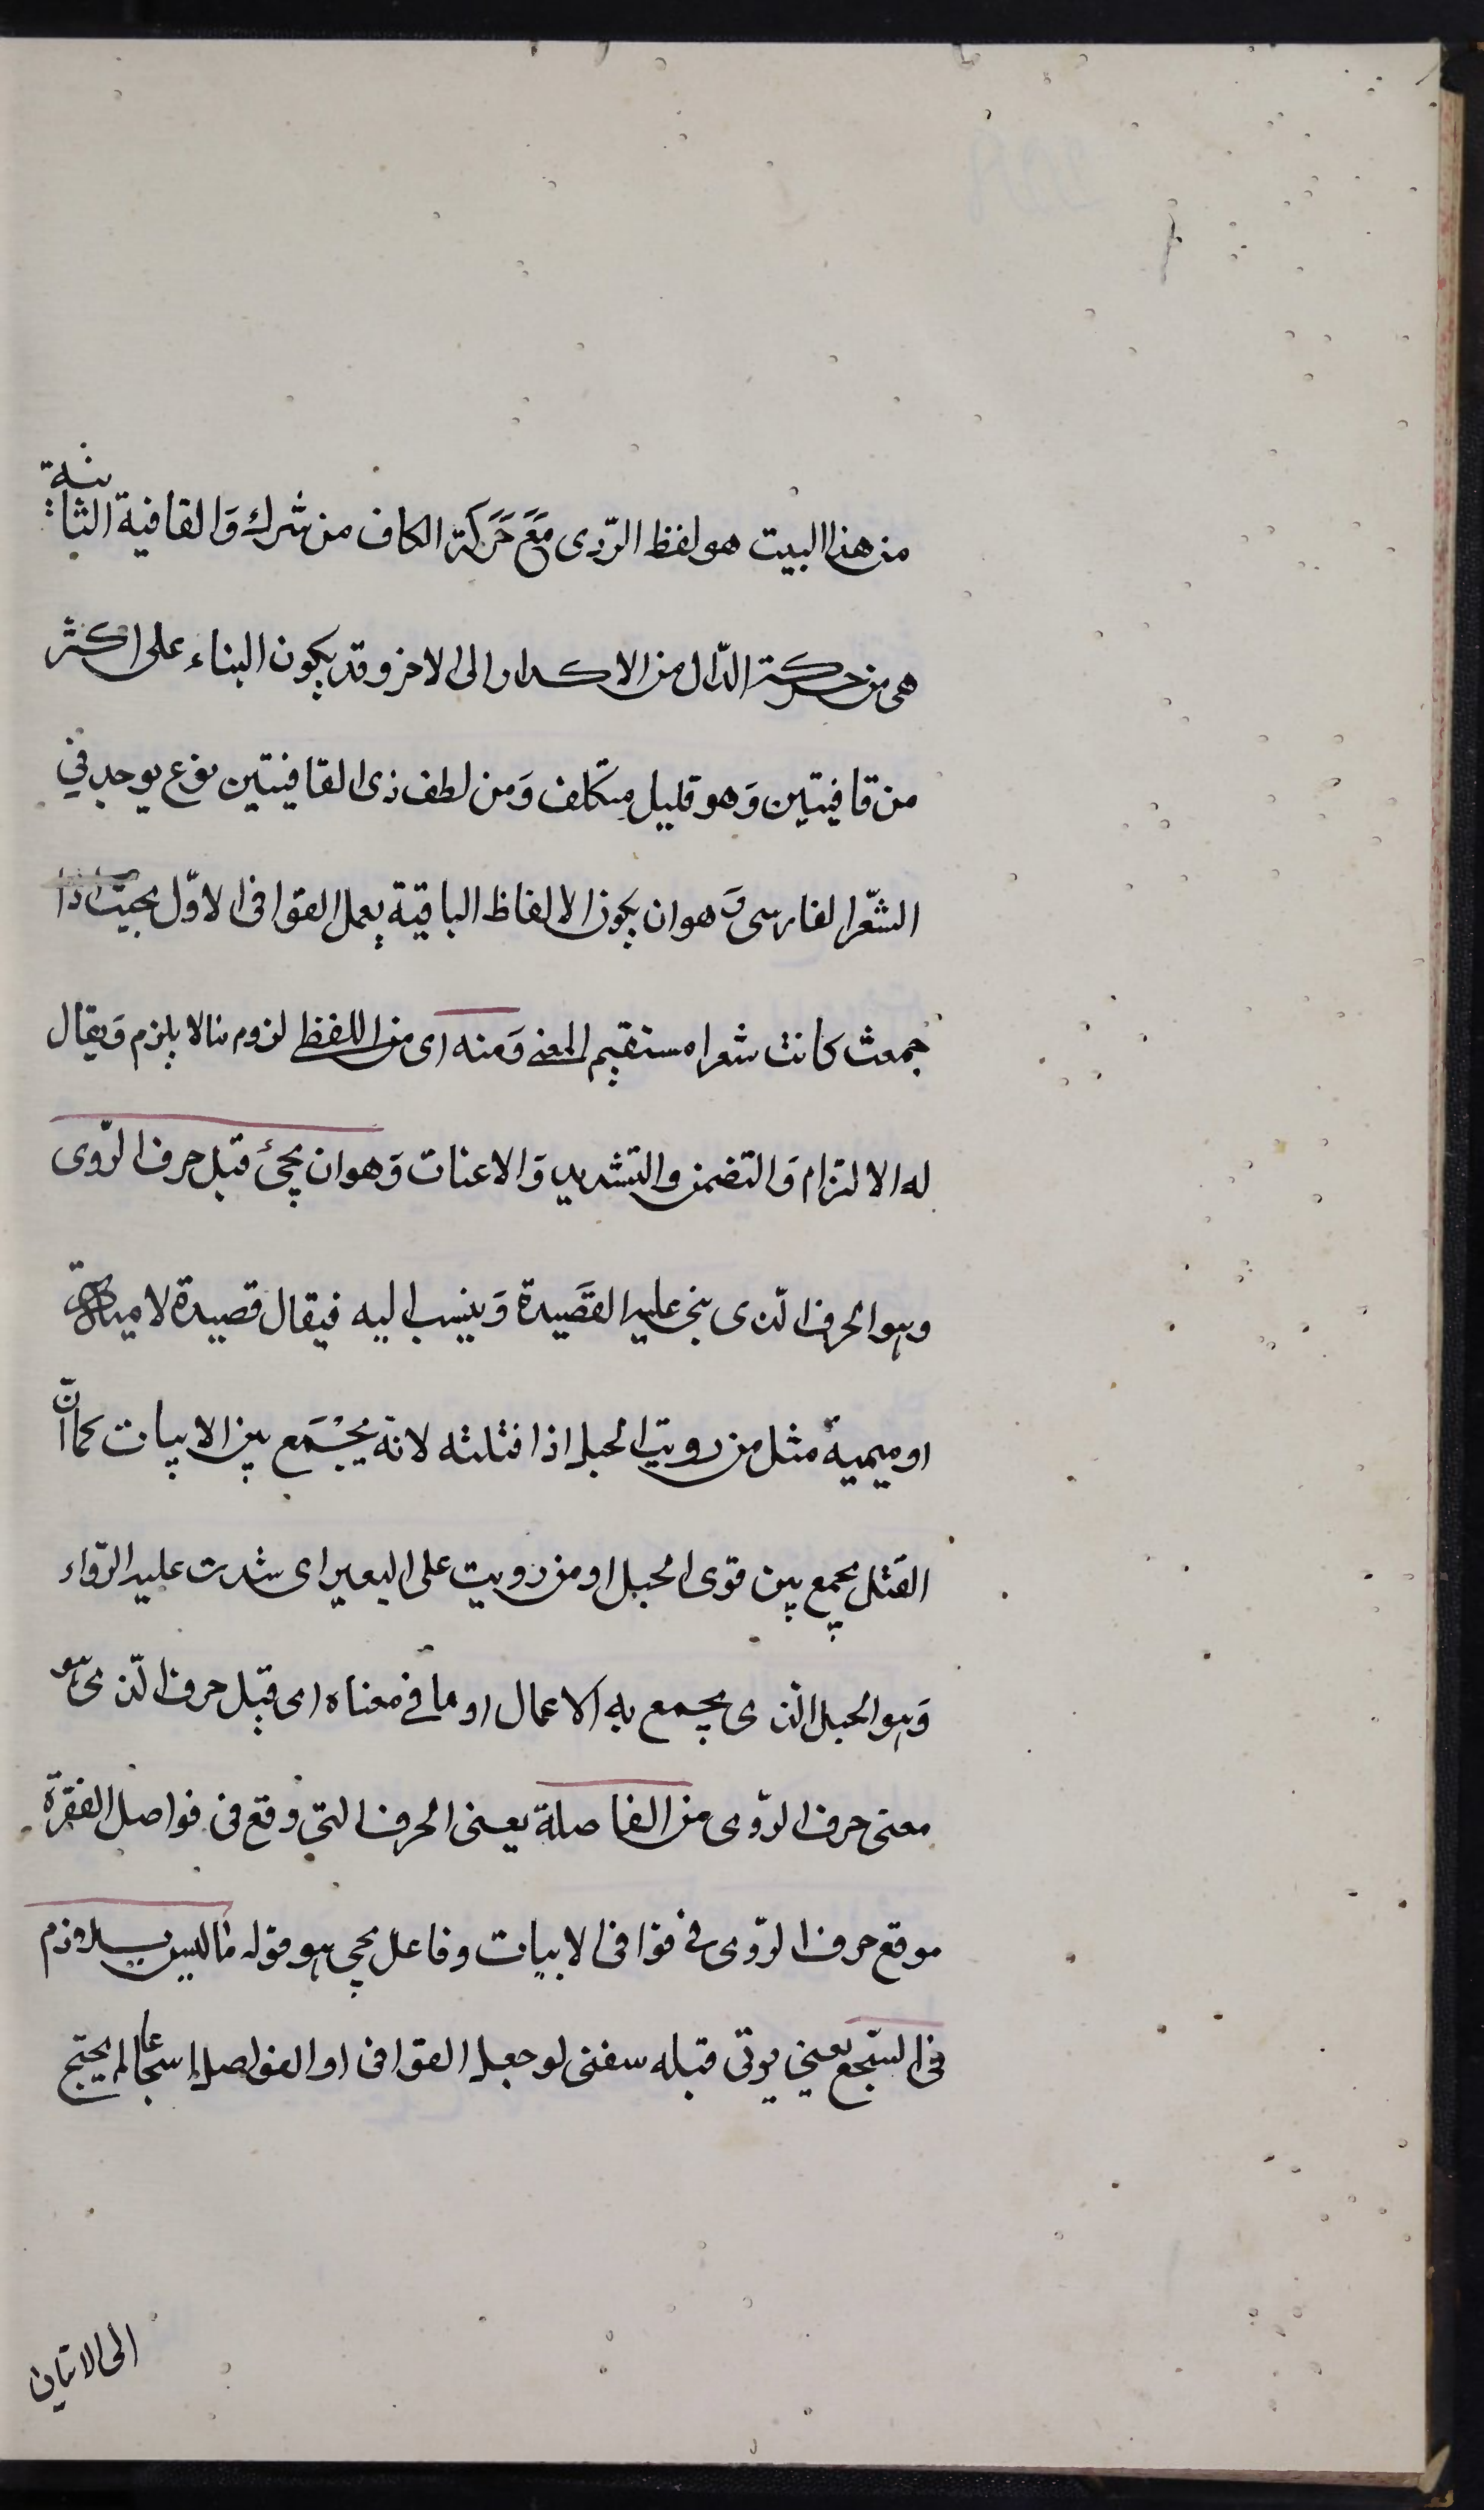 من هذا البيت هو لفظ الرّدى مَعَ حَركَة الكاف من شرك وَالقافية الثانية
هى من حركة الدّال من الاكدار الى الاخر وقد يكون البناء على اكثر
من قافيتين وَهو قليل متكلف وَمن لطف ذى القافيتين نوع يوجد في
الشّعر الفارسى وَهو ان يكون الالفاظ الباقية بعمل القوافى الاوّل بحيث اذا
جمعت كانت شعرا مستقيم المعنى وَمنه اى من اللفظى لزوم مالا يلزم وَيقال
له الالتزام وَالتضمن والتشديد وَالاعنات وَهو ان يجئ قبل حرف الرّوى
وهو الحرف الّذى بنى عليه القَصيدة وَينسب اليه فيقال قصيدة لامية
او ميمية مثل من رويت الحبل اذا فتلته لانه يجْتَمع بين الابيات كما انّ
الفتل يجمع بين قوى الحبل او من رويت على البعير اى شدت عليه الرّواء
وَهو الحبل الّذى يجمع به الاعمال او ما في معناه اى قبل حرف الّذى هو
معنى حرف الرّوى من الفاصلة يعنى الحرف التي وقع فى فواصل الفقرة
موقع حرف الرّوى في قوافى الابيات وفاعل يجى هو قوله ما ليس بلازم
فى السّجع يعني يوتى قبله سفنى لو جعل القوافى او الفواصل اسجاعا لم يحتج
الى الاتيان